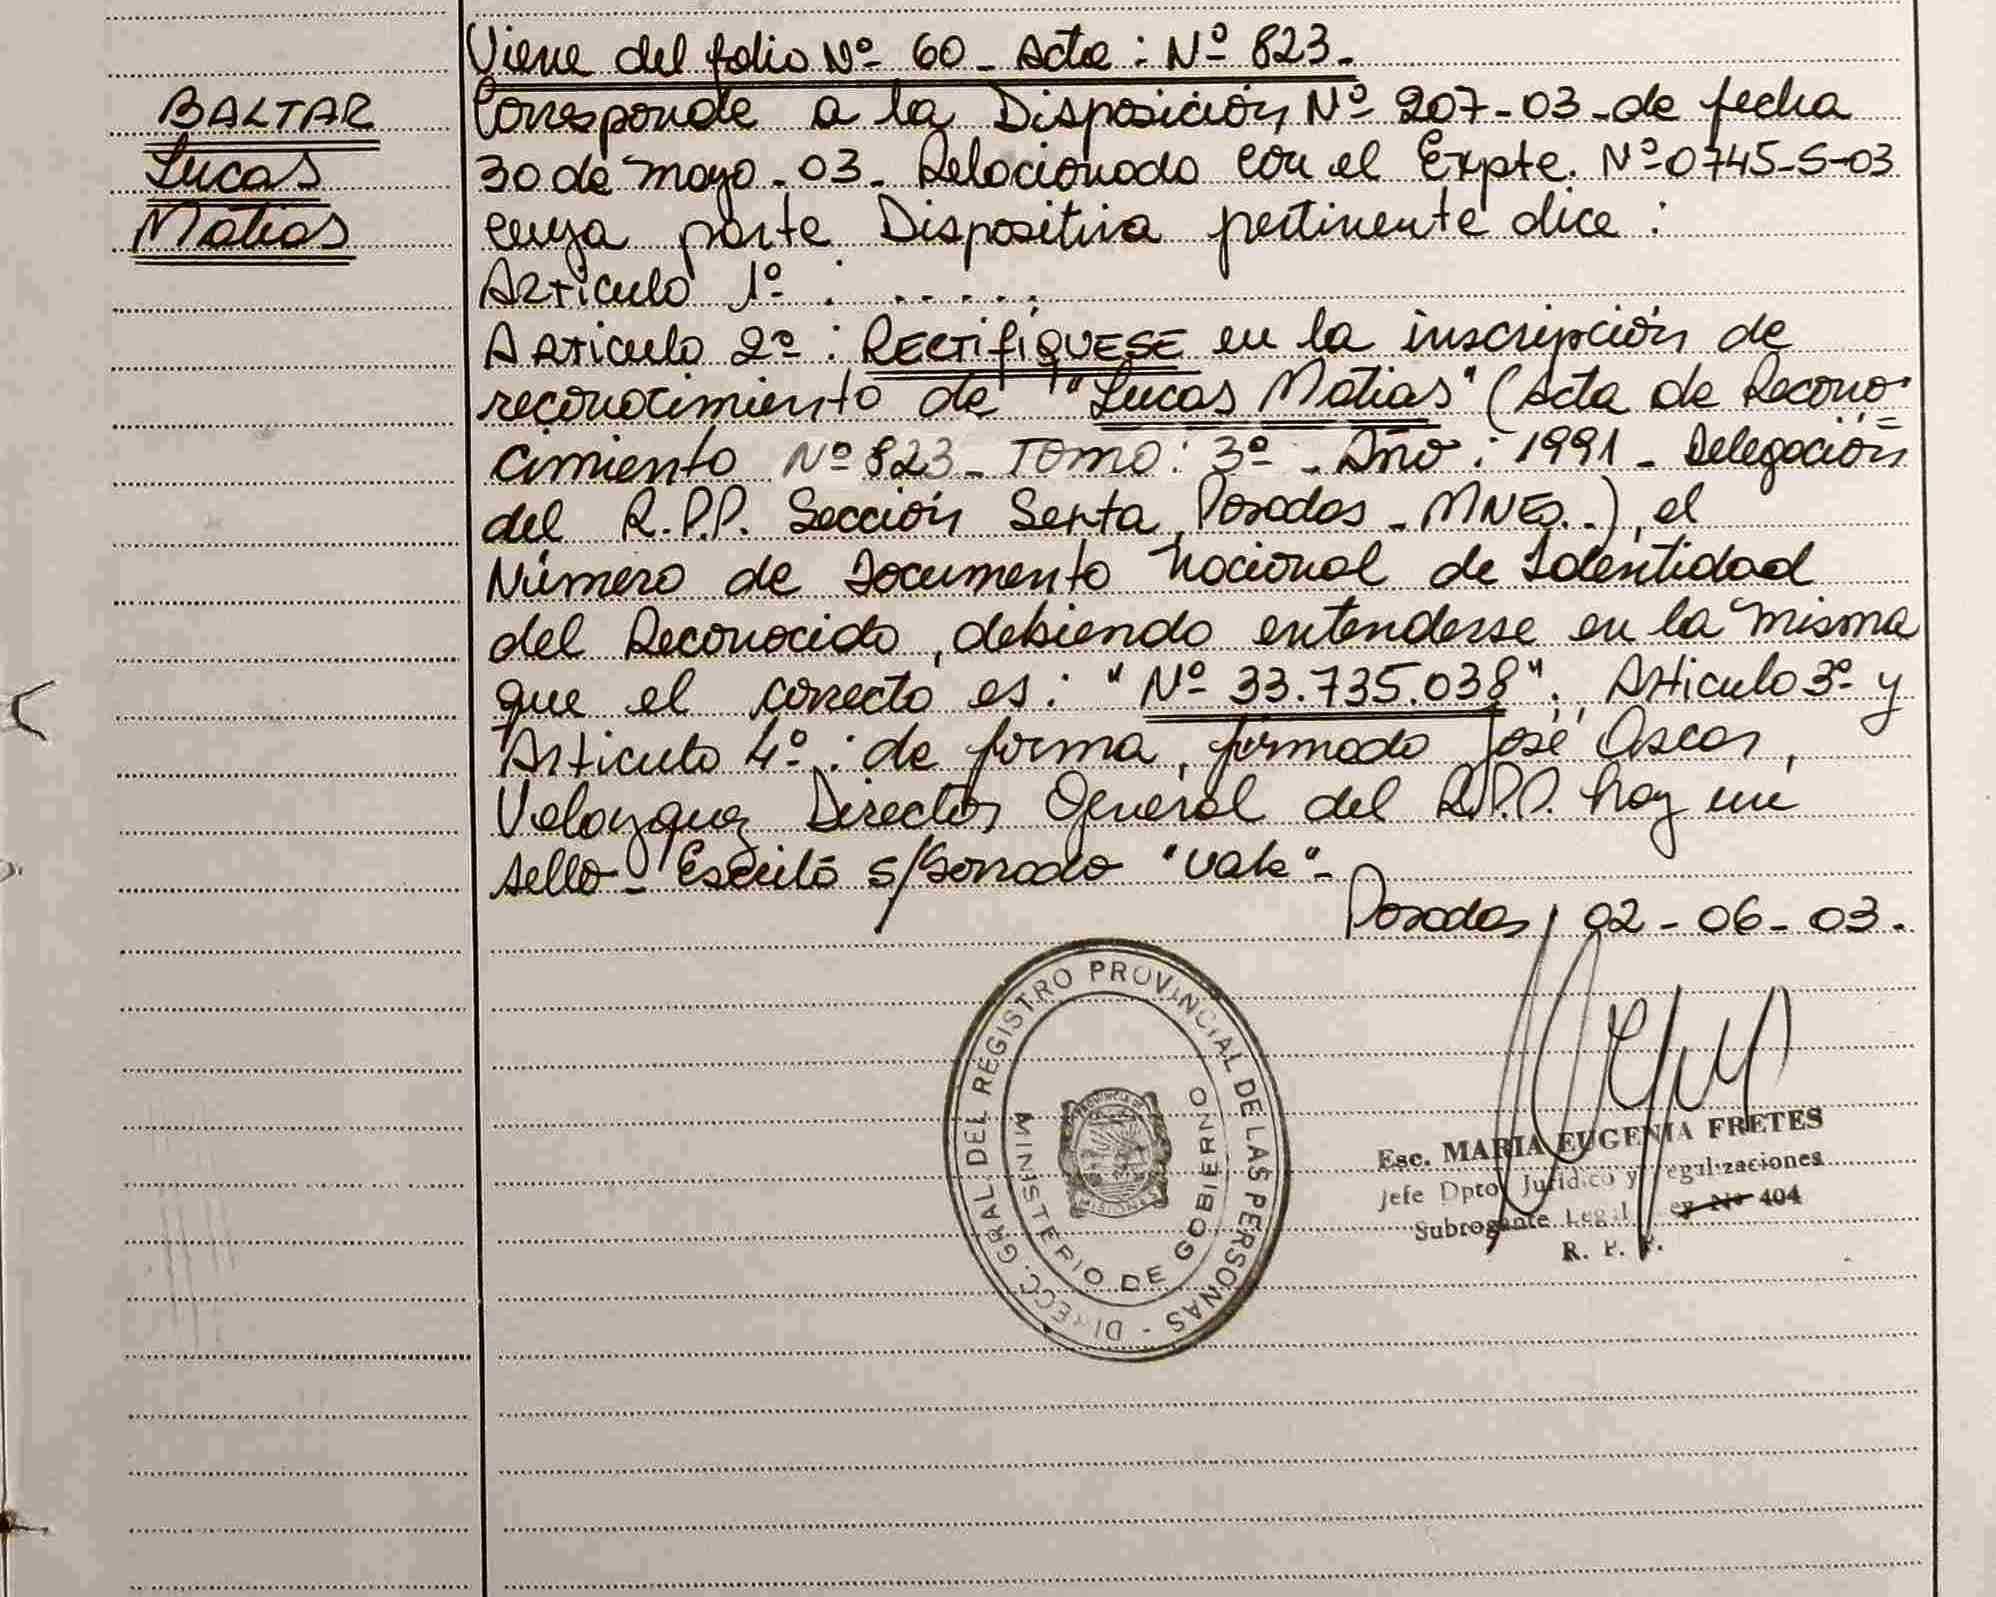 Viene del folio Nº 60 - Acta : Nº 823.-
BALTAR
Lucas
Matias
Corresponde a la Disposición Nº 207-03-de fecha
30 de mayo-03- Relacionado con el Expte. Nº 0745-S-03
cuya parte Dispositiva pertinente dice :
Articulo 1º : . . . . .
Articulo 2º : RECTIFÍQUESE en la inscripción de
reconocimiento de "Lucas Matias" (Acta de Recono=
cimiento Nº 823 - TOMO: 3º - Año : 1991 - Delegación
del R.P.P. Sección Sexta Posadas - MNES.-), el
Número de Documento Nacional de Identidad
del Reconocido, debiendo entenderse en la misma
que el correcto es: "Nº 33.735.038". Articulo 3º y
Articulo 4º : de forma, firmado José Oscar,
Velazquez Director General del R.P.P. hay un
sello- Escrito s/borrado "vale"-
Posadas, 02-06-03.
DIRECC. GRAL. DEL REGISTRO PROVINCIAL DE LAS PERSONAS -
MINISTERIO DE GOBIERNO
PROVINCIA DE
MISIONES
Esc. MARIA EUGENIA FRETES
Jefe Dpto. Jurídico y Legalizaciones
Subrogante Legal Ley Nº 404
R. P. P.